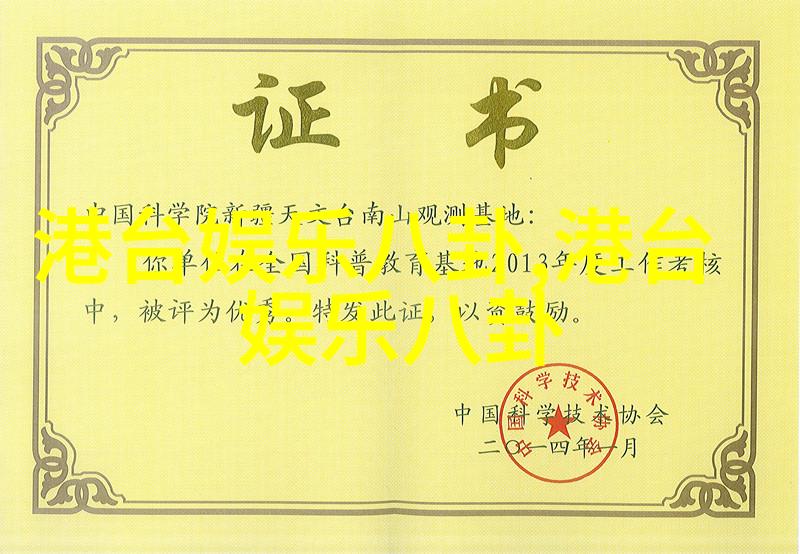 证书
中国科学院新疆天文台南山观测基地：
你单位在全国科普教育基地2013年度工作考核
中，被评为优秀。特发此证，以资鼓励。
港台娱乐八卦,港台
娱乐八卦
中国科学技术协会
二〇一四年一月
中国科学技术协会